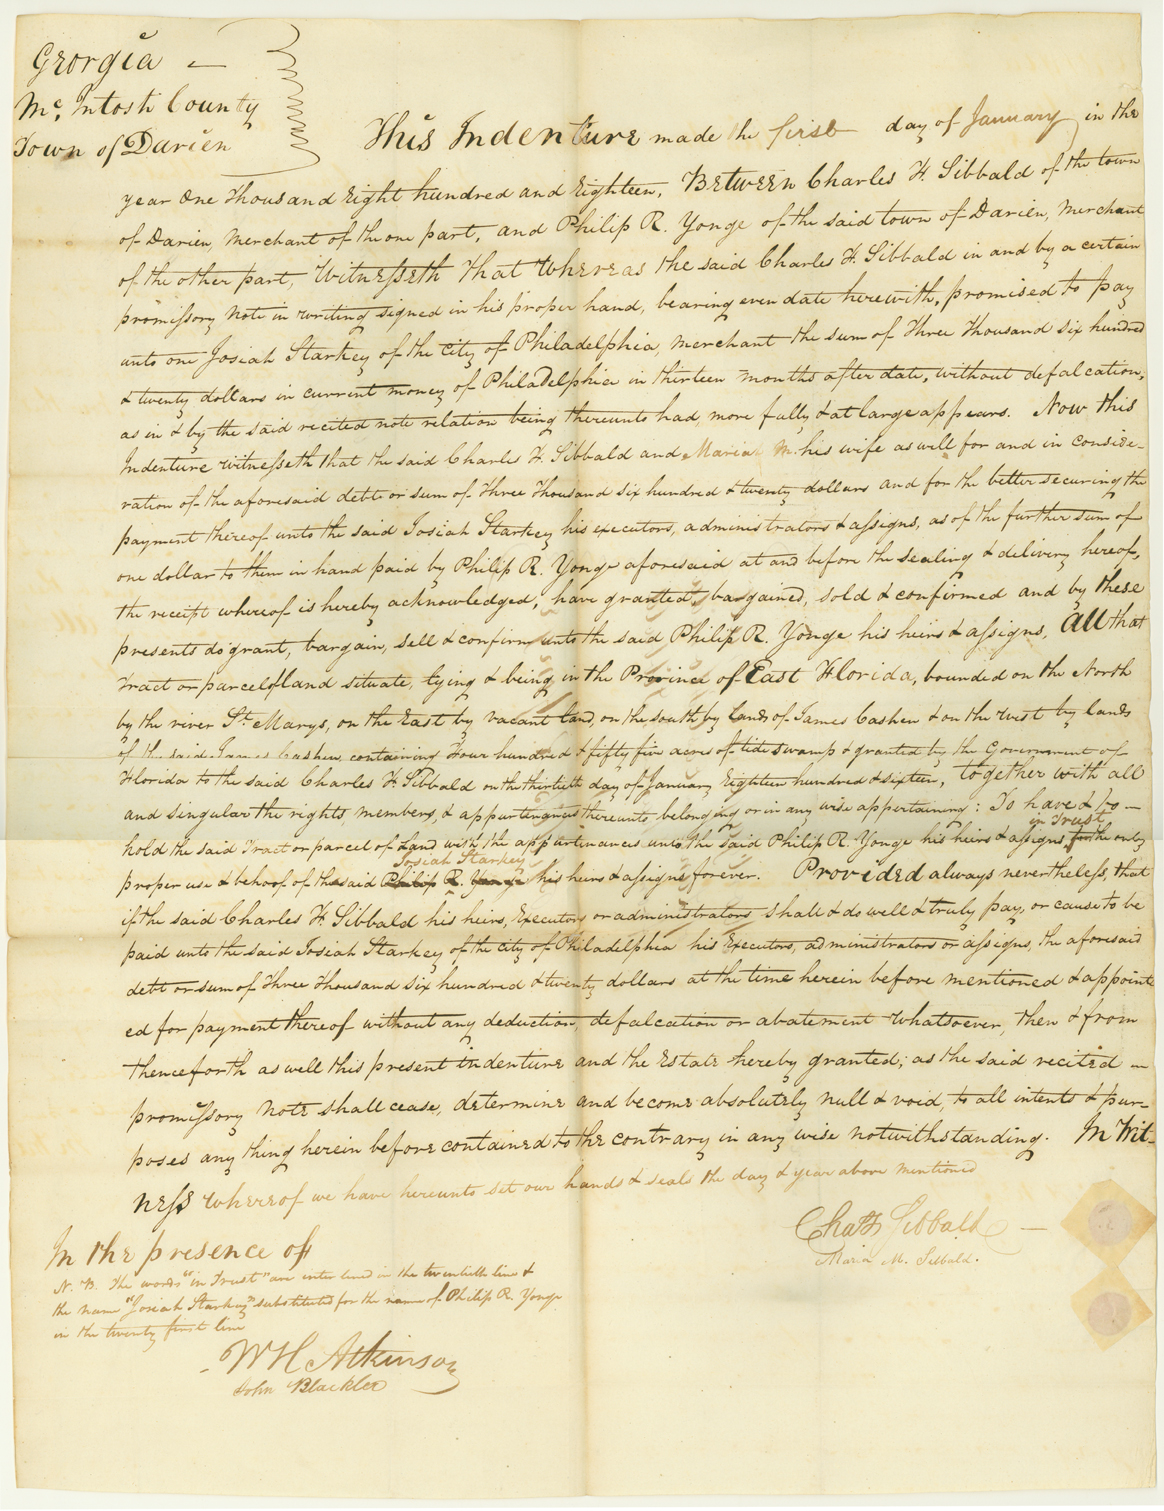 Georgia —
Mc. Intosh County
Town of Darien
This Indenture made the first day of January in the
year One Thousand Eight hundred and Eighteen, Between Charles H. Sibbald of the town
of Darien, Merchant of the one part, and Philip R. Yonge of the said town of Darien, Merchant
of the other part, Witnesseth That Whereas the said Charles H. Sibbald in and by a certain
promissory Note in writing signed in his proper hand, bearing even date herewith, promised to pay
unto one Josiah Starkey of the City of Philadelphia, Merchant the sum of Three Thousand six hundred
& twenty dollars in current money of Philadelphia in thirteen months after date, without defalcation,
as in & by the said recited note relation being thereunto had, more fully & at large appears. Now this
Indenture Witnesseth that the said Charles H. Sibbald and Maria M. his wife as well for and in conside-
ration of the aforesaid debt or sum of Three Thousand six hundred & twenty dollars and for the better securing the
payment thereof unto the said Josiah Starkey his executors, administrators & assigns, as of the further sum of
one dollar to them in hand paid by Philip R. Yonge aforesaid at and before the sealing & delivery hereof,
the receipt whereof is hereby acknowledged, have granted, bargained, sold & confirmed and by these
presents do grant, bargain, sell & confirm unto the said Philip R. Yonge his heirs & assigns, All that
Tract or parcel of land situate, lying & being in the Province of East Florida, bounded on the North
by the river St. Marys, on the East by vacant land, on the south by lands of James Cashen & on the West by lands
of the said James Cashen, containing Four hundred & fifty five acres of tide swamp & granted by the Government of
Florida to the said Charles H. Sibbald on the thirtieth day of January Eighteen hundred & sixteen, together with all
and singular the rights members, & appurtenances thereunto belonging or in any wise appertaining: To have & to —
in Trust
hold the said Tract or parcel of Land with the appurtenances unto the said Philip R. Yonge his heirs & assigns for the only
Josiah Starkey
proper use & behoof of the said Philip R. Yonge his heirs & assigns forever. Provided always nevertheless, that
if the said Charles H. Sibbald his heirs, Executors or administrators shall & do well & truly pay, or cause to be
paid unto the said Josiah Starkey of the city of Philadelphia his Executors, administrators or assigns, the aforesaid
debt or sum of Three Thousand six hundred & twenty dollars at the time herein before mentioned & appoint
ed for payment thereof without any deduction, defalcation or abatement whatsoever, then & from
thenceforth as well this present indenture and the Estate hereby granted; as the said recited —
promissory Note shall cease, determine and become absolutely null & void, to all intents & pur-
poses any thing herein before contained to the contrary in any wise notwithstanding. In Wit-
ness whereof we have hereunto set our hands & seals the day & year above mentioned
Chas H Sibbald —
Maria M. Sibbald.
In the presence of
N. B. The words "in Trust" are interlined in the twentieth line &
the name "Josiah Starkey" substituted for the name of Philip R. Yonge
in the twenty first line
W H Atkinson
John Blackler